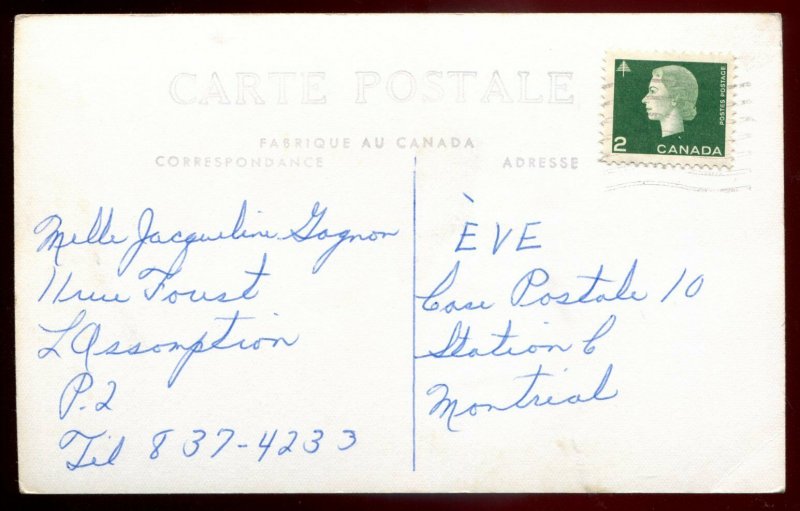 CARTE POSTALE
FABRIQUE AU CANADA
CORRESPONDANCE
ADRESSE
POSTES POSTAGE
2 CANADA
Melle Jacqueline Gagnon
11 rue Forest
L'Assomption
P.2
Tél 837-4233
ÈVE
Case Postale 10
Station C
Montréal